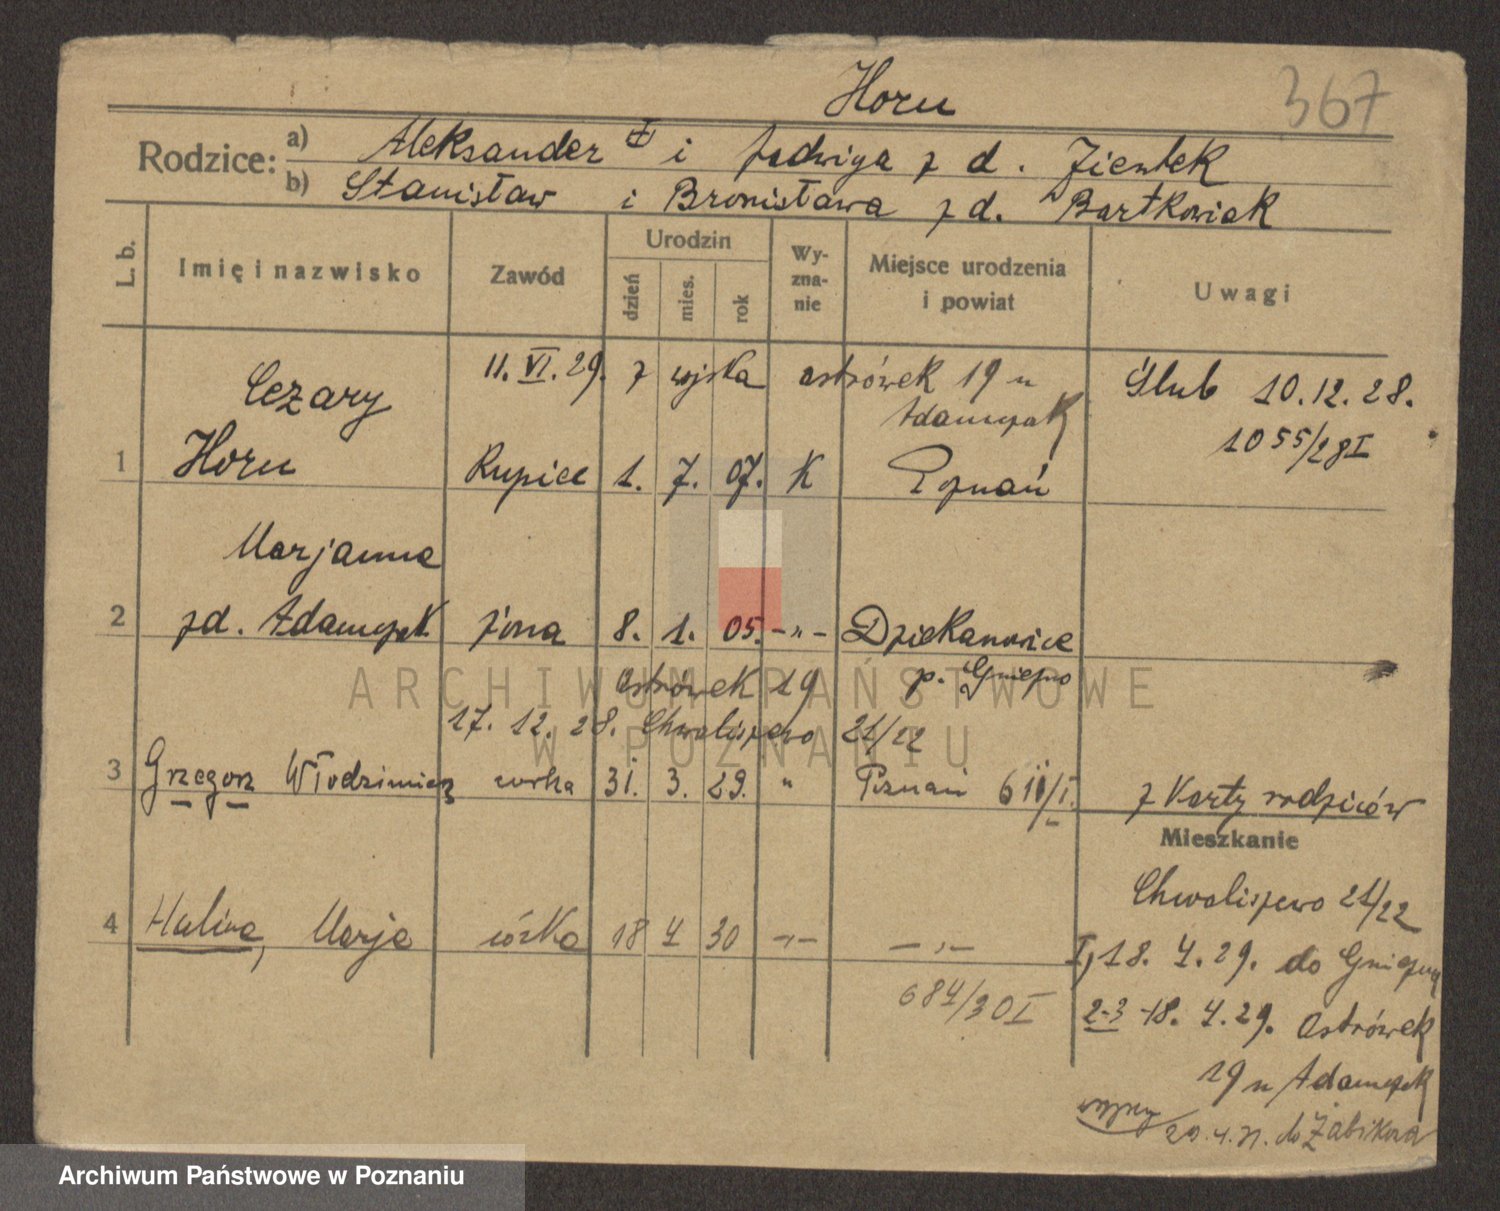 Horu
367
Rodzice:
a) Aleksander i Jadwiga z d. Zientek
b) Stanisław i Bronisława z d. Bartkowiak
L. b.
Imię i nazwisko
Zawód
Urodzin
dzień
mies.
rok
Wy-
zna-
nie
Miejsce urodzenia
i powiat
Uwagi
11. VI. 29. z wojska ostrówek 19 u
Adamczak
Ślub 10.12.28.
1055/28 I
Cezary
1 Horu Kupiec 1. 7. 07. K Poznań
Marjanna
2 zd. Adamczak żona 8. 1. 05. -"- Dziekanowice
p. Gniezno
Ostrówek 19
17. 12. 28. Chwaliszewo 21/22
3 Grzegorz Włodzimierz 31. 3. 29. " Poznań 611/I.
z Karty rodziców
Mieszkanie
Chwaliszewo 21/22
4 Halina, Marja córka 18 4 30 -"- -"-
684/30 I
I, 18. 4. 29. do Gniezna
2-3 18. 4. 29. Ostrówek
19 u Adamczak
20.4.31. do Żabikowa
ARCHIWUM PAŃSTWOWE
W POZNANIU
Archiwum Państwowe w Poznaniu